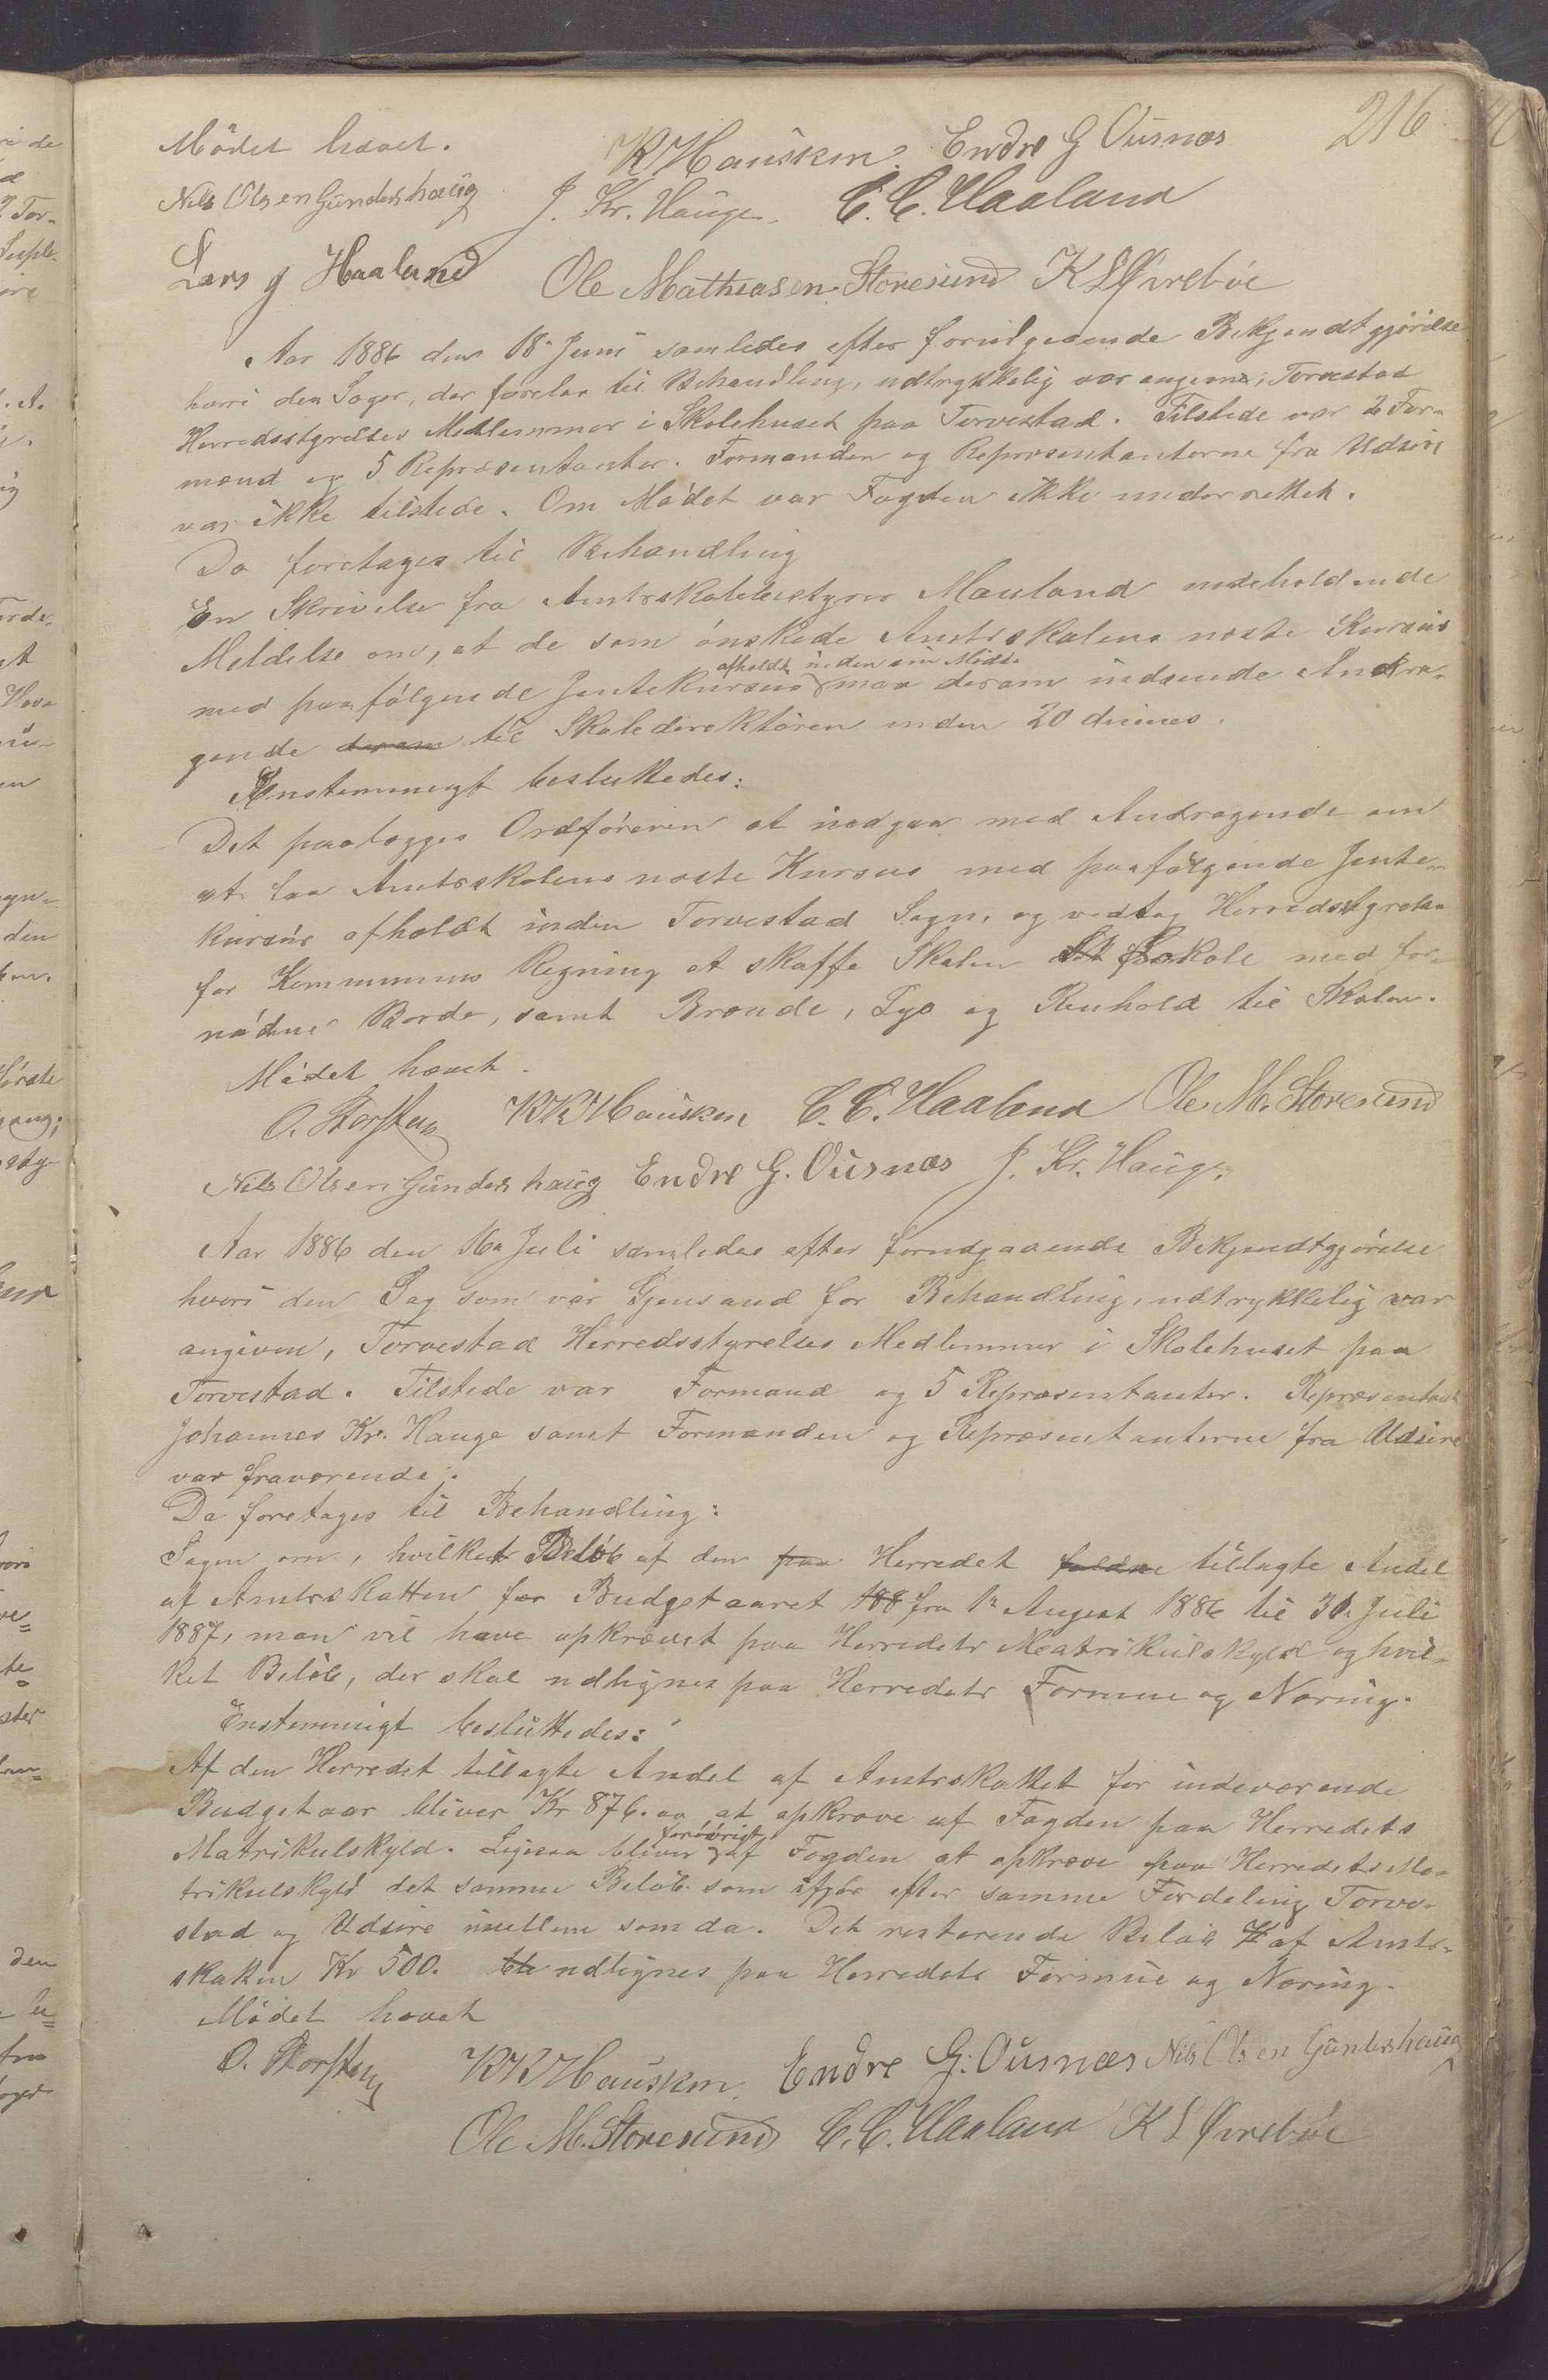 216
Mödet hævet.
KKHausken. Endre G Ousnæs
Nils Olsen Gunderhaug J. Kr. Hauge. C. C. Haaland
Lars J Haaland Ole Mathiasen Storesund K L Øvrebøe
Aar 1886 den 18de Juni samledes efter forudgaaende Bekjendtgjörelse
hvori den Sager, der forelaa til Behandling, udtrykkelig var angivne, Torvestad
Herredsstyrelses Medlemmer i Skolehuset paa Torvestad. Tilstede var 2 For-
mænd og 5 Repræsentanter. Formanden og Repræsentanterne fra Udsire
var ikke tilstede. Om Mödet var Fogden ikke underrettet.
Da foretages til Behandling
En Skrivelse fra Amtsskolebestyrer Mauland indeholdende
Meldelse om, at de som önskede Amtsskolens næste Kursus
med paafölgende Jentekursus maa derom indsende Andra-
afholdt inden sin Midte
gende derom til Skoledirektören inden 20 dennes.
Enstemmigt besluttedes:
Det paalægges Ordföreren at indgaa med Andragende om
at faa Amtsskolens næste Kursus med paafölgende Jente-
kursus afholdt inden Torvestad Sogn, og vedtog Herredsstyrelsen
for Kommunens Regning at skaffe Skolen Lokale med for-
nödne Borde, samt Brænde, Lys og Renhold til Skolen.
Mödet hævet.
O. Storsten KKHausken C. C. Haaland Ole M. Storesund
Nils Olsen Gunderhaug Endre G. Ousnæs J. Kr. Hauge.
Aar 1886 den 16de Juli samledes efter forudgaaende Bekjendtgjörelse
hvori den Sag som var Gjenstand for Behandling, udtrykkelig var
angiven, Torvestad Herredsstyrelses Medlemmer i Skolehuset paa
Torvestad. Tilstede var Formænd og 5 Repræsentanter. Repræsentant
Johannes Kr. Hauge samt Formanden og Repræsentanterne fra Udsire
var fraværende.
Da foretages til Behandling:
Sagen om, hvilket Belöb af den paa Herredet faldne tillagte Andel
af Amtsskatten for Budgetaaret 188 fra 1ste August 1886 til 31te Juli
1887, man vil have opkrævet paa Herredets Matrikulskyld og hvil-
ket Belöb, der skal udlignes paa Herredets Formue og Næring.
Enstemmigt besluttedes:
Af den Herredet tillagte Andel af Amtsskattet for indeværende
Budgetaar bliver Kr 876.00 at opkræve af Fogden paa Herredets
Matrikulskyld. Ligesaa bliver af Fogden at opkræve paa Herredets Ma-
forövrigt
trikulskyld det samme Belöb som ifjor efter samme Fordeling Torve-
stad og Udsire imellem som da. Det resterende Belöb af Amts-
skatten Kr 500. udlignes paa Herredets Formue og Næring.
Mödet hævet
O. Storsten KKHausken. Endre G. Ousnæs Nils Olsen Gunderhaug
Ole M. Storesund C. C. Haaland K L Øvrebøe